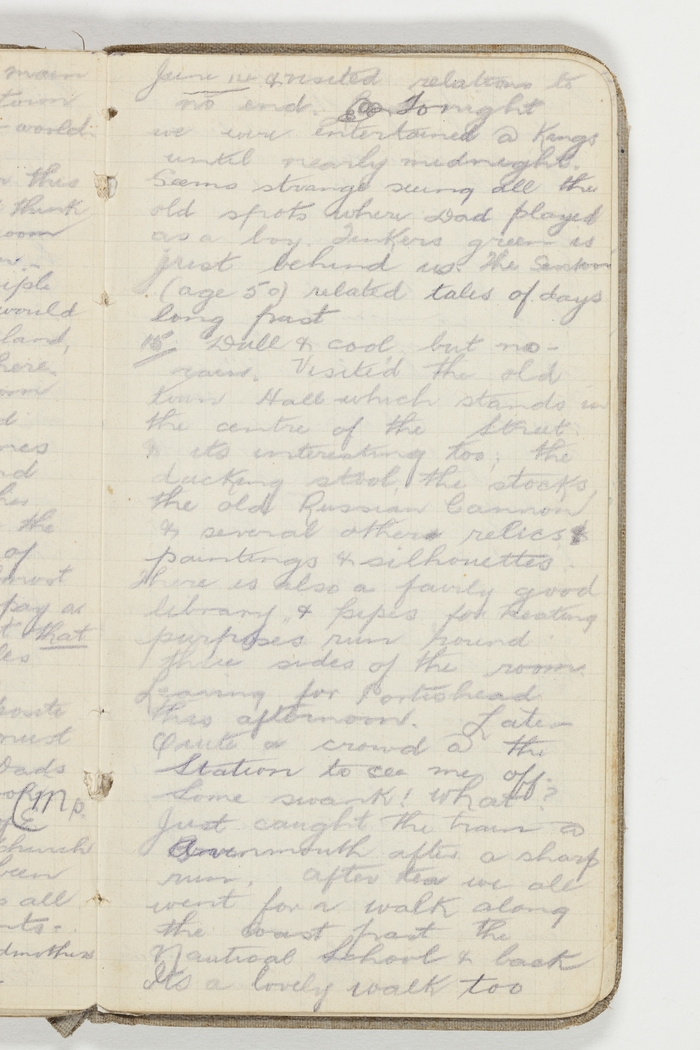 main
town
world.
this
think
room
iple
would
land,
here
oom
d
mes
nd
the
of
most
pay as
t that
les
posite
must
Dads
(Mp.
church
been
s all
nts.
dmothers
June 14 & visited relations to
no end. Tonight
we were entertained @ Kings
until nearly midnight.
Seems strange seeing all the
old spots where Dad played
as a boy. Tinkers green is
just behind us. The Sexton
(age 50) related tales of days
long past
15 Dull & cool but no-
rain. Visited the old
town Hall which stands in
the centre of the Street.
& its interesting too; the
ducking stool, the stocks,
the old Russian Cannon
& several others relics &
paintings & silhouettes.
There is also a fairly good
library, & pipes for heating
purposes run round
three sides of the room.
Leaving for Portishead
this afternoon. Later
Quite a crowd @ the
Station to see me off.
Some swank! What?
Just caught the train @
Avonmouth after a sharp
run. After tea we all
went for a walk along
the coast past the
Nautical School & back
Its a lovely walk too